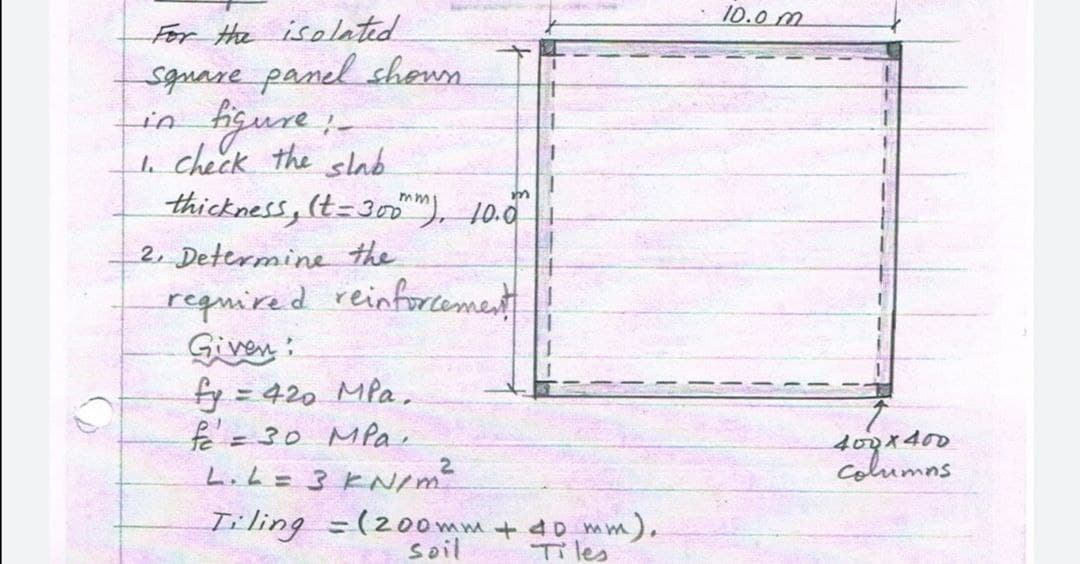 For the isolated
square panel shown
in figure :-
1. check the slab
thickness, (t=300mm).
2. Determine the
required reinforcement
Given :
fy = 420 MPa.
fc' = 30 MPa.
L.L = 3 KN/m2
Tiling = (200mm + 40 mm).
soil Tiles
10.0 m
10.0 m
400x400
Columns